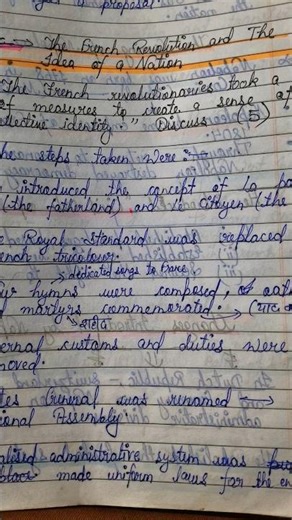 proposal
→ The French Revolution and The
Idea of a Nation
The French revolutionaries took a
of measures to create a sense of
llective identity." Discuss (5)
he steps taken were :-
introduced the concept of la pa
(the fatherland) and le citoyen (the
Royal Standard was replaced
ench tricolour.
→ dedicated songs to france
hymns were composed, oath
martyrs commemorated. → (याद
→ शहीद
ernal customs and duties were
moved.
tes General was renamed →
ional Assembly.
alised administrative system was
place made uniform laws for the en